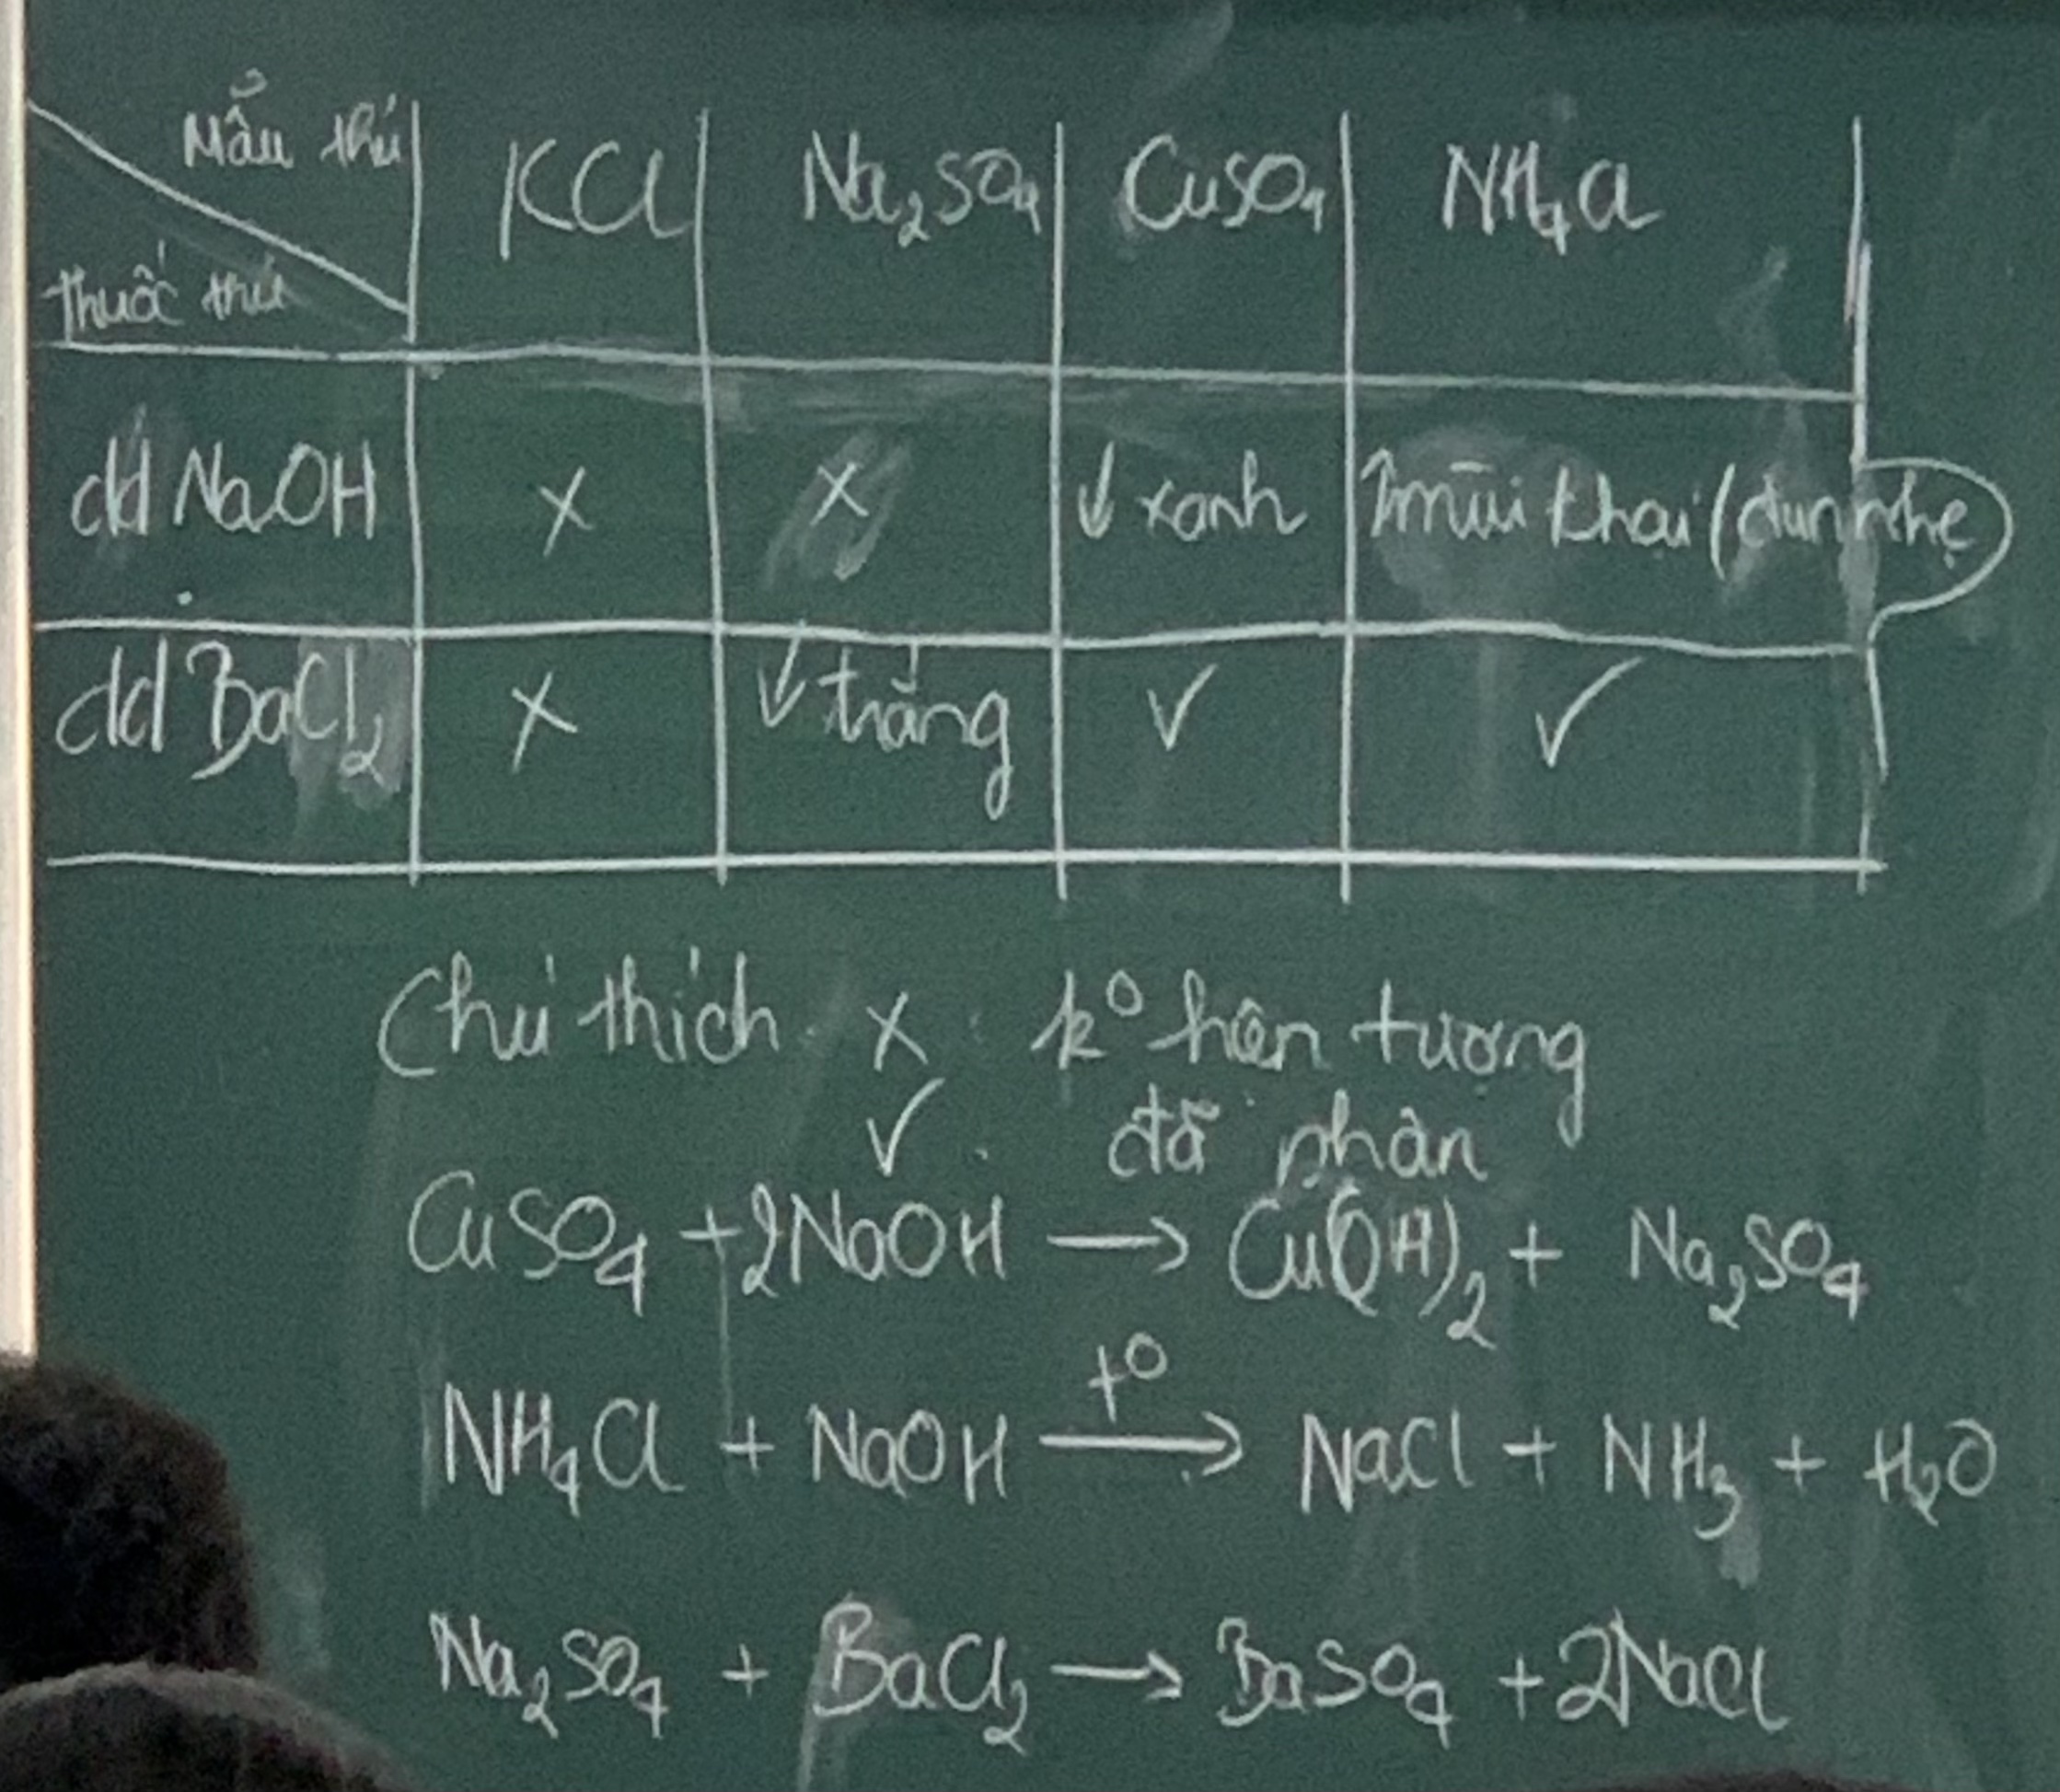 Mẫu thử KCl Na₂SO₄ CuSO₄ NH₄Cl
Thuốc thử
dd NaOH x x ↓ xanh ↑ mùi khai (đun nhẹ)
dd BaCl₂ x ↓ trắng ✓ ✓
Chú thích x : k° hiện tượng
✓ : đã phân
CuSO₄ + 2NaOH → Cu(OH)₂ + Na₂SO₄
t°
NH₄Cl + NaOH → NaCl + NH₃ + H₂O
Na₂SO₄ + BaCl₂ → BaSO₄ + 2NaCl